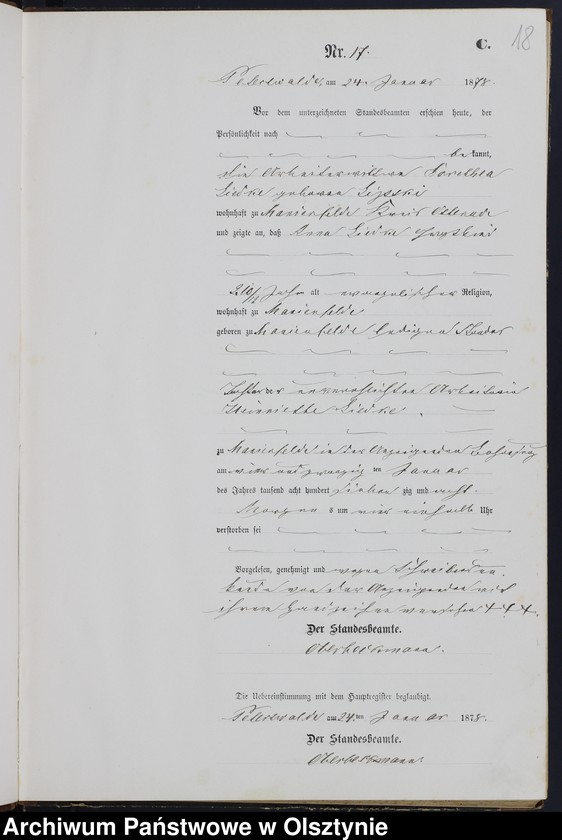 C. 18
Nr. 17.
Peterswalde, am 24. Januar 1878.
Vor dem unterzeichneten Standesbeamten erschien heute, der
Persönlichkeit nach
bekannt,
die Arbeiterwittwe Dorethea
Liedke geborene
wohnhaft zu Marienfelde Kreis Osterode
und zeigte an, daß Anna Liedke
Jahre alt evangelischer Religion,
wohnhaft zu Marienfelde
geboren zu Marienfelde ledigen Standes
Tochter der unverehelichten Arbeiterin
Henriette Liedke.
zu Marienfelde in der Anzeigenden Behausung
am vier und zwanzig ten Januar
des Jahres tausend acht hundert sieben zig und acht
Morgens um vier einhalb Uhr
verstorben sei
Vorgelesen, genehmigt und wegen Schreibens un-
kunde von der Anzeigenden mit
ihrem Handzeichen versehen + + +.
Der Standesbeamte.
Die Uebereinstimmung mit dem Hauptregister beglaubigt.
Peterswalde am 24. ten Januar 1878.
Der Standesbeamte.
Archiwum Państwowe w Olsztynie